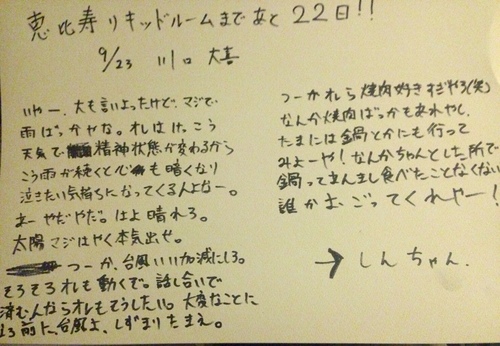 恵比寿リキッドルームまであと22日!!
9/23 川口 大喜
いやー、大も言いよったけど、マジで
雨ばっかやな。オレはけっこう
天気で精神状態が変わるから
こう雨が続くとでも暗くなり
泣きたい気持ちになってくるんよなー。
まーやだやだ。はよ晴れろ。
太陽マジはやく本気出せ。
つーか、台風いい加減にしろ。
そろそろオレも動くで。話し合いで
済むんならオレもそうしたい。大変なことに
なる前に、台風よ、しずまりたまえ。
つーかオレら焼肉好きすぎやろ(笑)
なんか焼肉ばっかもあれやし、
たまには鍋とかにも行って
みよーや!なんかちゃんとした所で
鍋ってまんまし食べたことなくない
誰かおごってくれやー!
→しんちゃん.